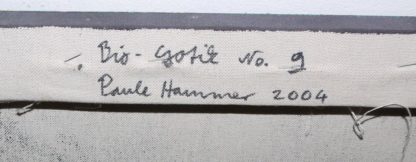 Bio-Gotik No. 9
Paule Hammer 2004